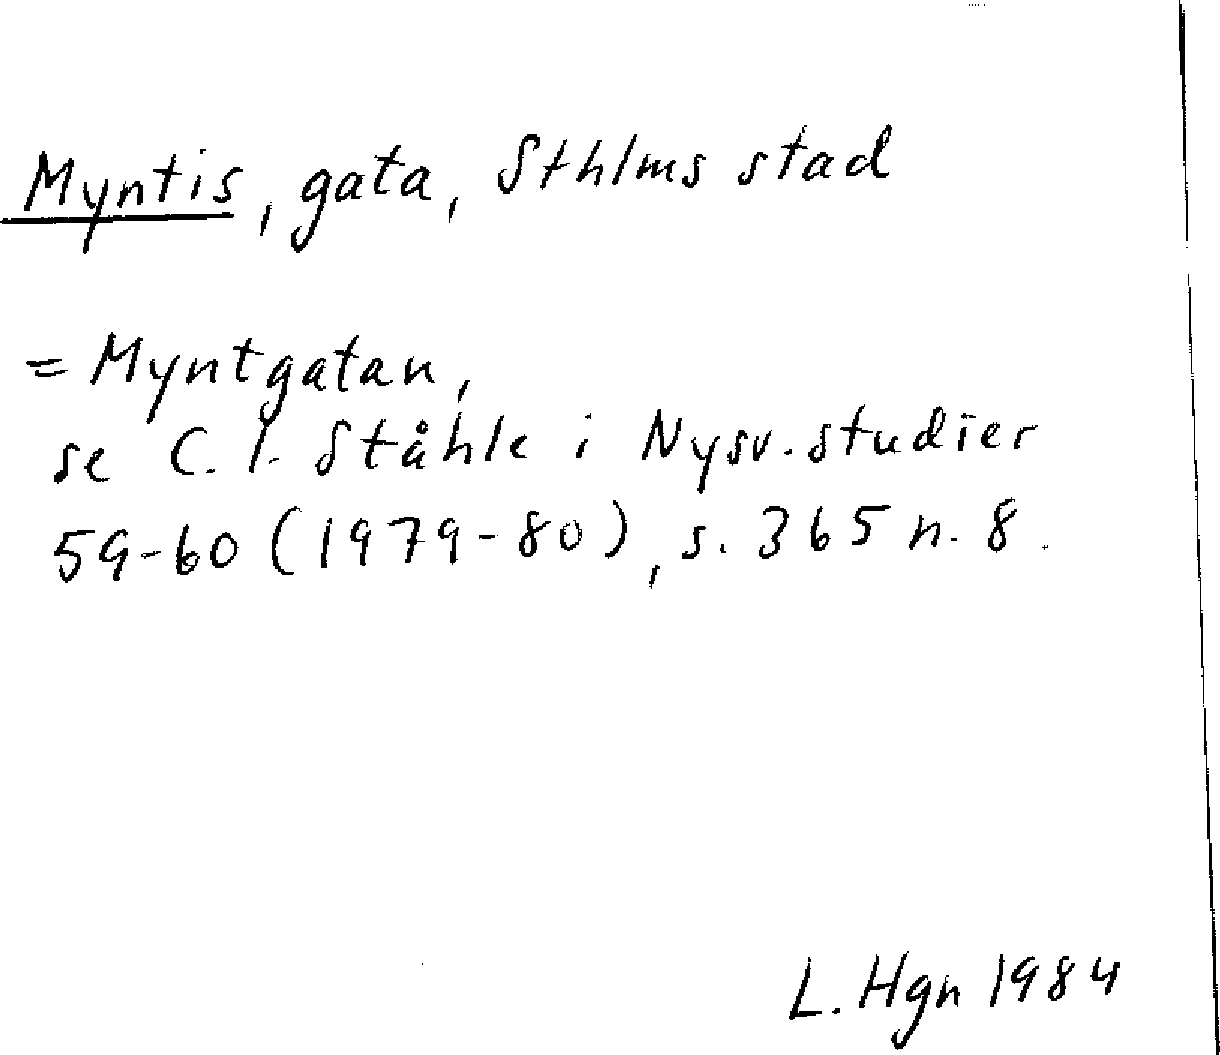 Myntis, gata, Sthlms stad
= Myntgatan,
se C. I. Ståhle i Nysv. studier
59-60 (1979-80), s. 365 n. 8.
L. Hgn 1984